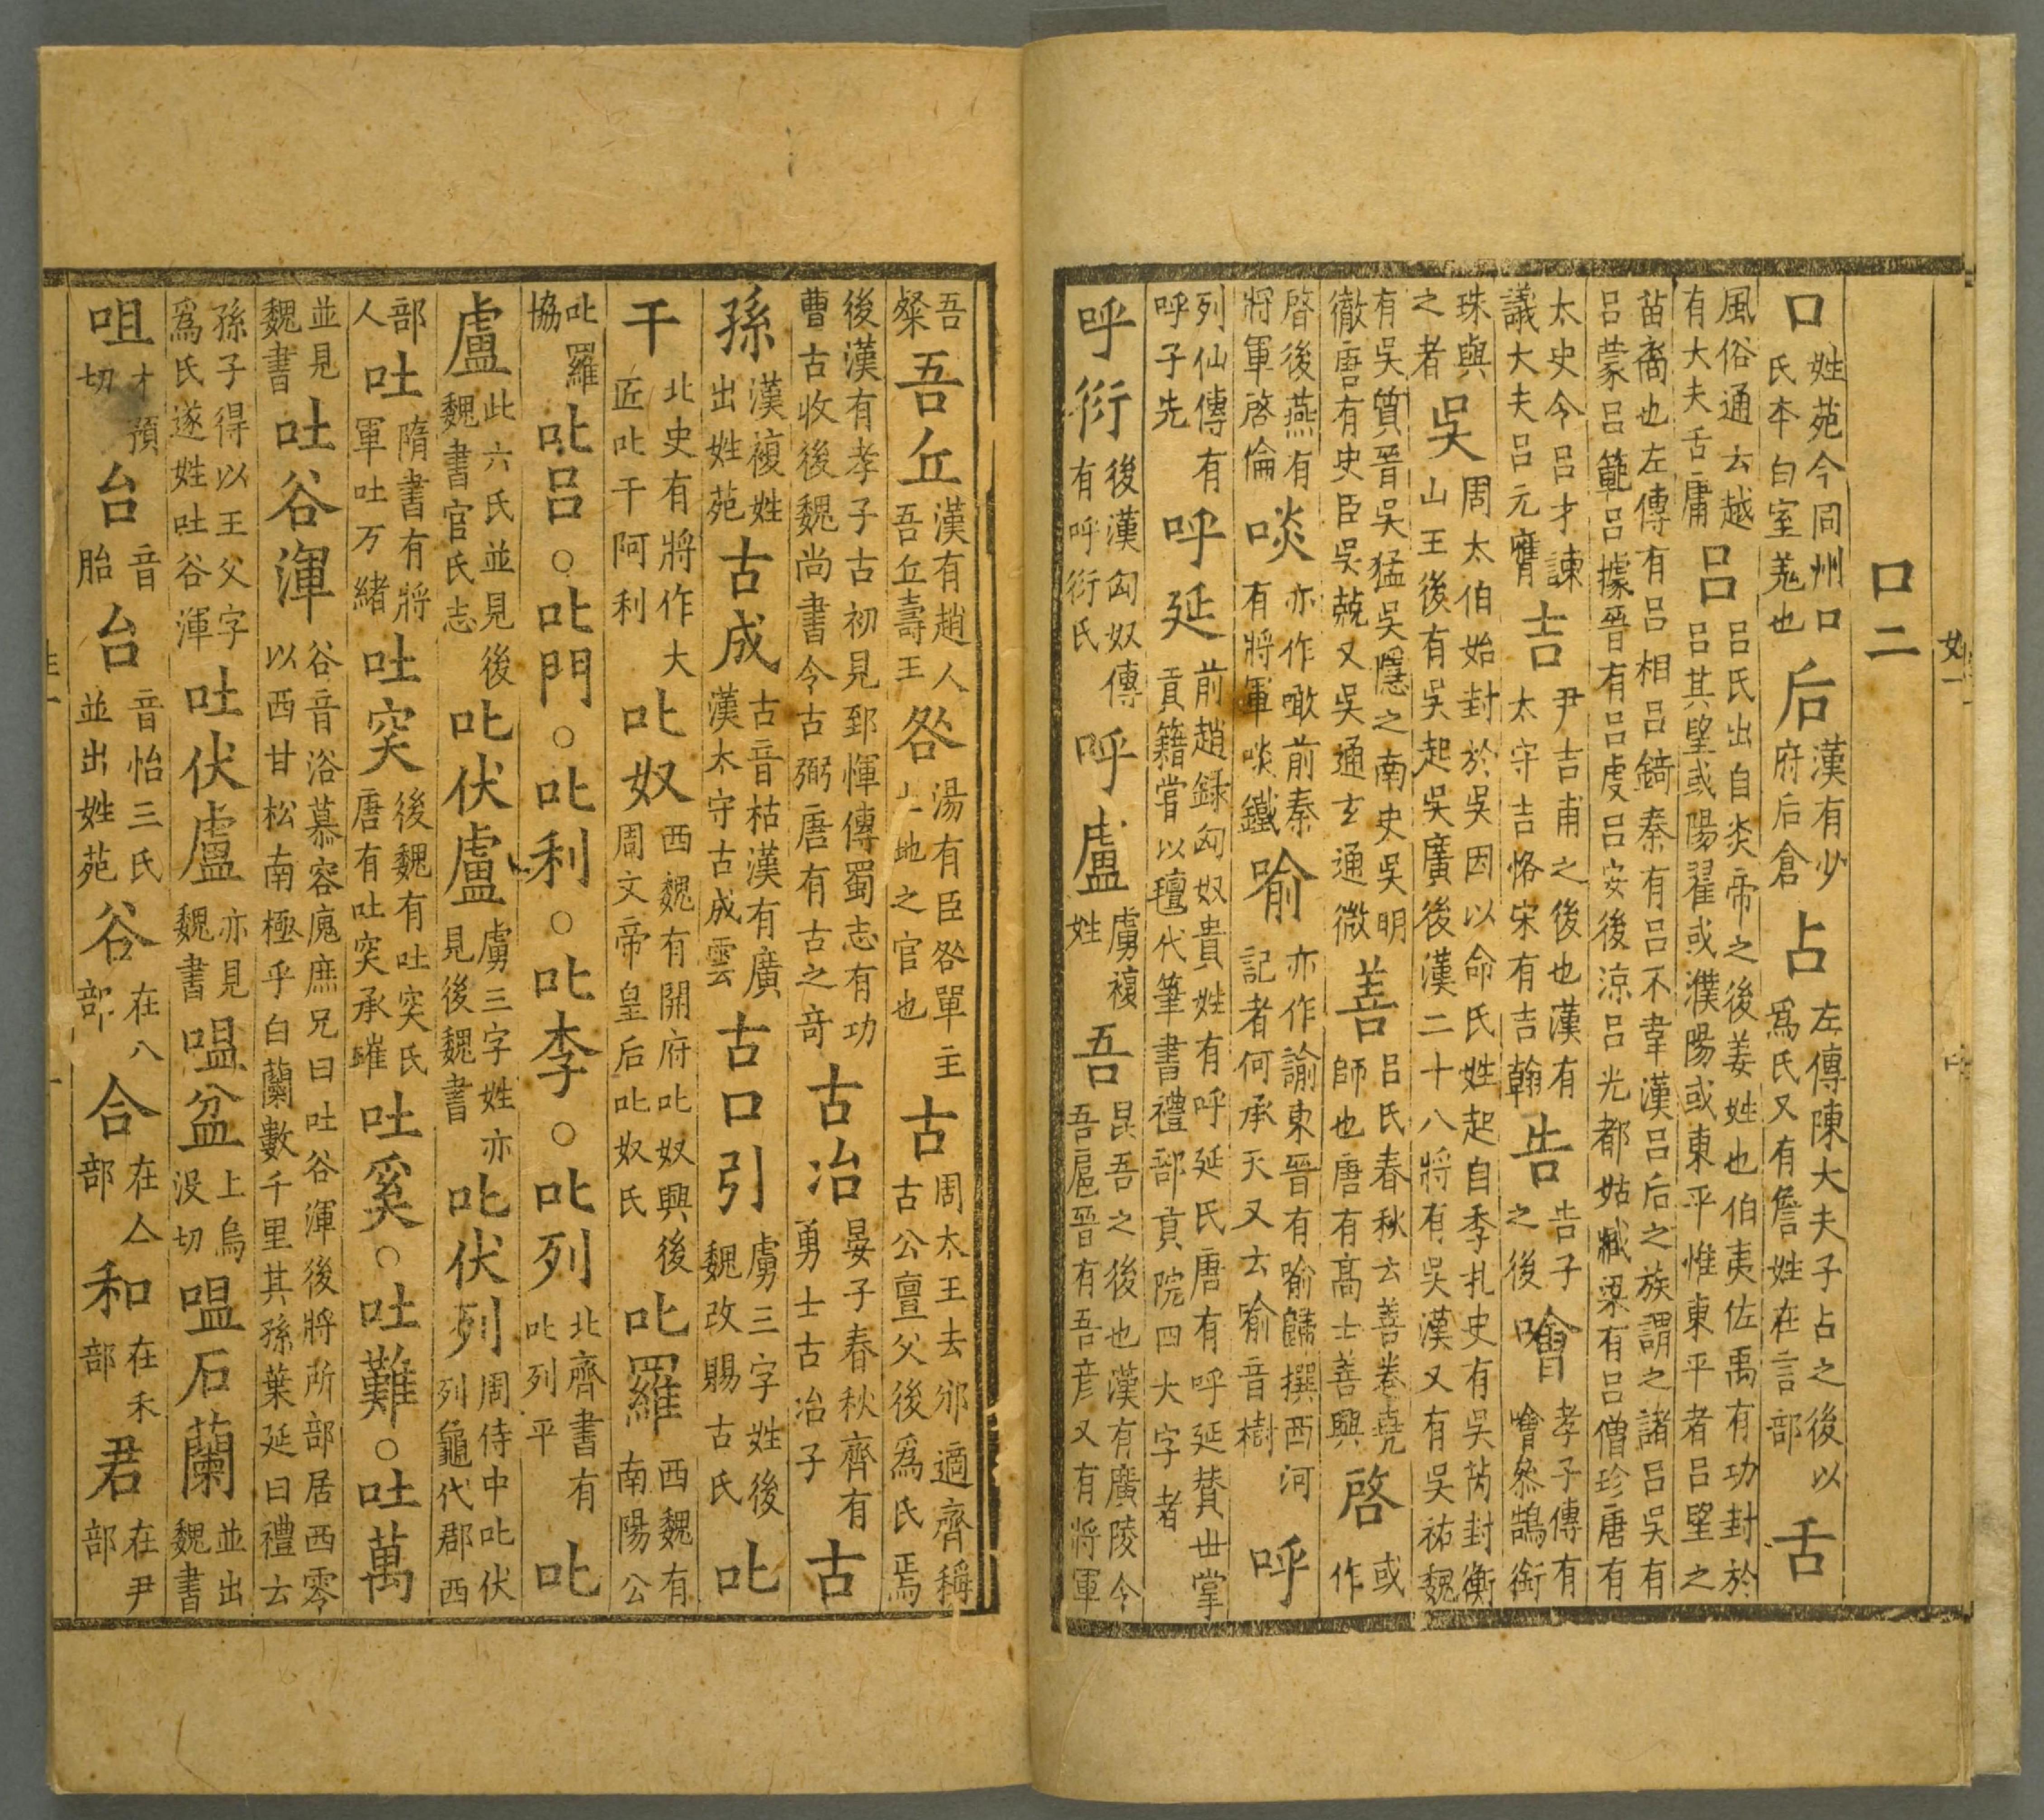 口二
口姓苑今同州口氏本白室羗也后漢有少府后倉占左傳陳大夫子占之後以爲氏又有詹姓在言部舌
風俗通云越有大夫舌庸呂呂氏出自炎帝之後姜姓也伯夷佐禹有功封於呂其望或陽翟或濮陽或東平惟東平者呂望之
苗裔也左傳有呂相呂錡秦有呂不韋漢呂后之族謂之諸呂吳有呂蒙呂範呂據晉有呂虔呂安後涼呂光都姑臧梁有呂僧珍唐有
太史令呂才諫議大夫呂元膺吉尹吉甫之後也漢有太守吉恪宋有吉翰告告子之後噲孝子傳有噲叅鵠銜
珠與之者吳周太伯始封於吳因以命氏姓起自季札史有吳芮封衡山王後有吳起吳廣後漢二十八將有吳漢又有吳祐魏
有吳質晉吳猛吳隱之南史吳明徹唐有史臣吳兢又吳通玄通微善呂氏春秋云善卷堯師也唐有高士善興啓或作
啓後燕有將軍啓倫啖亦作噉前秦有將軍啖鐵喻亦作諭東晉有喻歸撰西河記者何承天又云喻音樹呼
列仙傳有呼子先呼延前趙録匈奴貴姓有呼延氏唐有呼延贊丗掌貢籍嘗以氊代筆書禮部貢院四大字者
呼衍後漢匈奴傳有呼衍氏呼盧虜複姓吾昆吾之後也漢有廣陵令吾扈晉有吾彦又有將軍
吾粲吾丘漢有趙人吾丘壽王咎湯有臣咎單主土地之官也古周太王去邠適齊稱古公亶父後爲氏焉
後漢有孝子古初見郅惲傳蜀志有功曹古收後魏尚書令古弼唐有古之奇古冶晏子春秋齊有勇士古冶子古
孫漢複姓出姓苑古成古音枯漢有廣漢太守古成雲古口引虜三字姓後魏改賜古氏叱
干北史有將作大匠叱干阿利叱奴西魏有開府叱奴興後周文帝皇后叱奴氏叱羅西魏有南陽公
叱羅協叱呂○叱門○叱利○叱李○叱列北齊書有叱列平叱
盧此六氏並見後魏書官氏志叱伏盧虜三字姓亦見後魏書叱伏列周侍中叱伏列龜代郡西
部人吐隋書有將軍吐万緒吐突後魏有吐突氏唐有吐突承璀吐奚○吐難○吐萬
並見魏書吐谷渾谷音浴慕容廆庶兄曰吐谷渾後將所部居西零以西甘松南極乎白蘭數千里其孫葉延曰禮云
孫子得以王父字爲氏遂姓吐谷渾吐伏盧亦見魏書嗢盆上烏沒切嗢石蘭並出魏書
咀才預切台音胎台音怡三氏並出姓苑谷在八部合在亼部和在禾部君在尹部